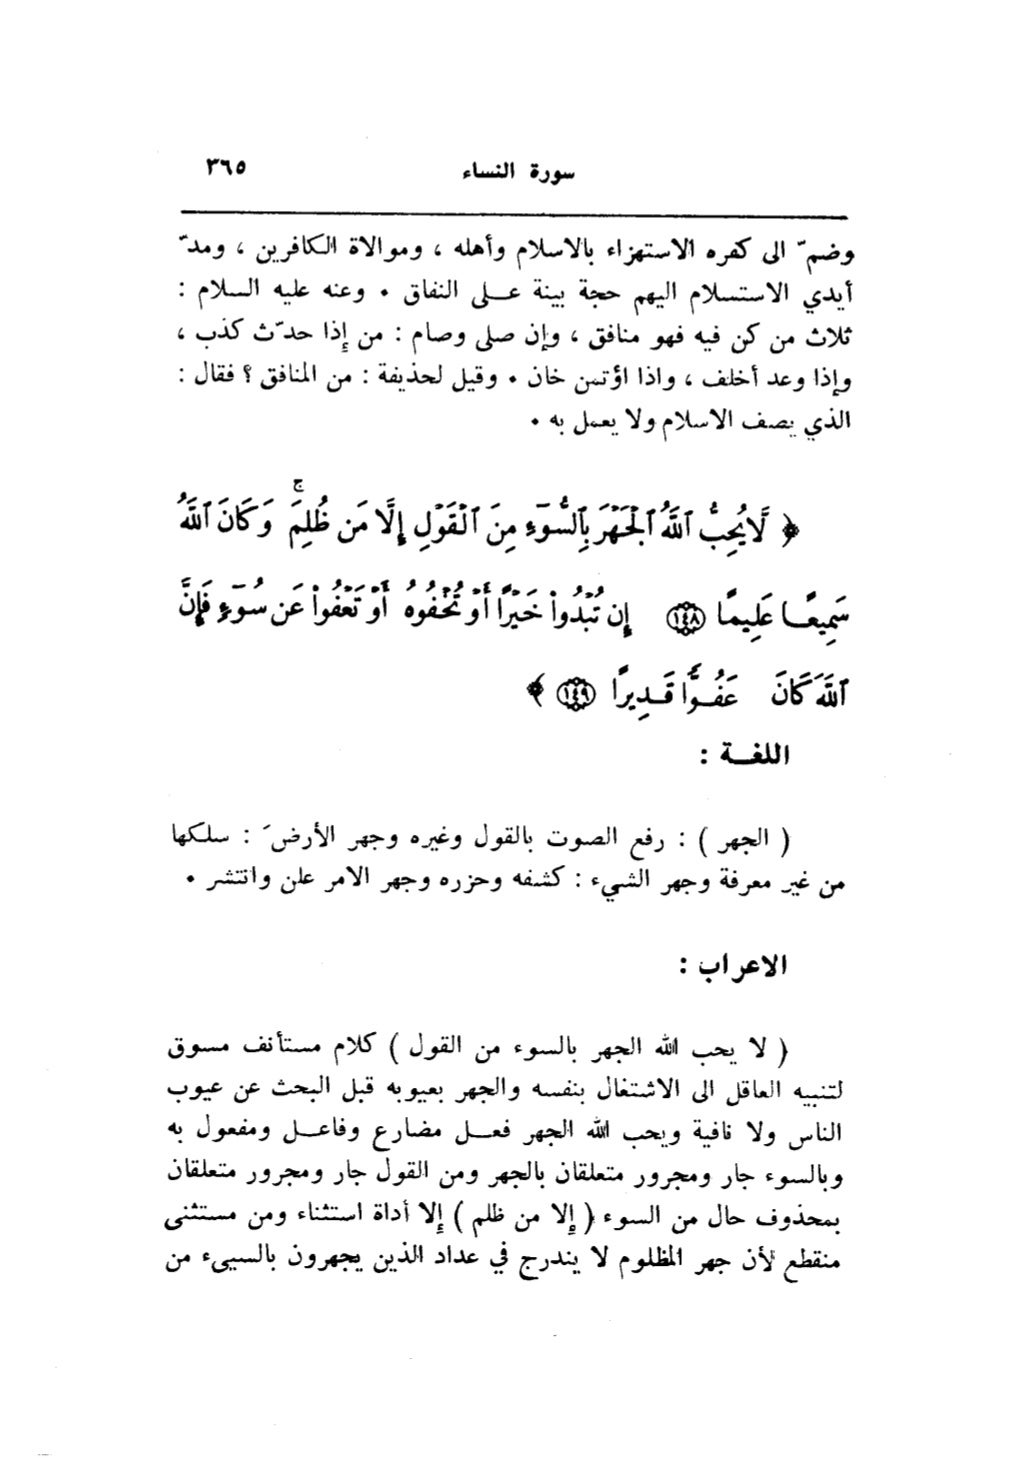 سورة النساء ٣٦٥
وضمّ الى كفره الاستهزاء بالاسلام وأهله ، وموالاة الكافرين ، ومدّ
أيدي الاستسلام اليهم حجة بينة على النفاق ٠ وعنه عليه السلام :
ثلاث من كن فيه فهو منافق ، وإن صلى وصام : من إذا حدّث كذب ،
وإذا وعد أخلف ، واذا اؤتمن خان ٠ وقيل لحذيفة : من المنافق ؟ فقال :
الذي يصف الاسلام ولا يعمل به ٠
﴿ لَّا يُحِبُّ ٱللَّهُ ٱلْجَهْرَ بِٱلسُّوٓءِ مِنَ ٱلْقَوْلِ إِلَّا مَن ظُلِمَ ۚ وَكَانَ ٱللَّهُ
سَمِيعًا عَلِيمًا ١٤٨ إِن تُبْدُوا۟ خَيْرًا أَوْ تُخْفُوهُ أَوْ تَعْفُوا۟ عَن سُوٓءٍ فَإِنَّ
ٱللَّهَ كَانَ عَفُوًّا قَدِيرًا ١٤٩ ﴾
اللغة :
( الجهر ) : رفع الصوت بالقول وغيره وجهر الأرضَ : سلكها
من غير معرفة وجهر الشيء : كشفه وحزره وجهر الامر علن وانتشر ٠
الاعراب :
( لا يحب الله الجهر بالسوء من القول ) كلام مستأنف مسوق
لتنبيه العاقل الى الاشتغال بنفسه والجهر بعيوبه قبل البحث عن عيوب
الناس ولا نافية ويحب الله الجهر فعل مضارع وفاعل ومفعول به
وبالسوء جار ومجرور متعلقان بالجهر ومن القول جار ومجرور متعلقان
بمحذوف حال من السوء ( إلا من ظلم ) إلا أداة استثناء ومن مستثنى
منقطع لأن جهر المظلوم لا يندرج في عداد الذين يجهرون بالسيىء من